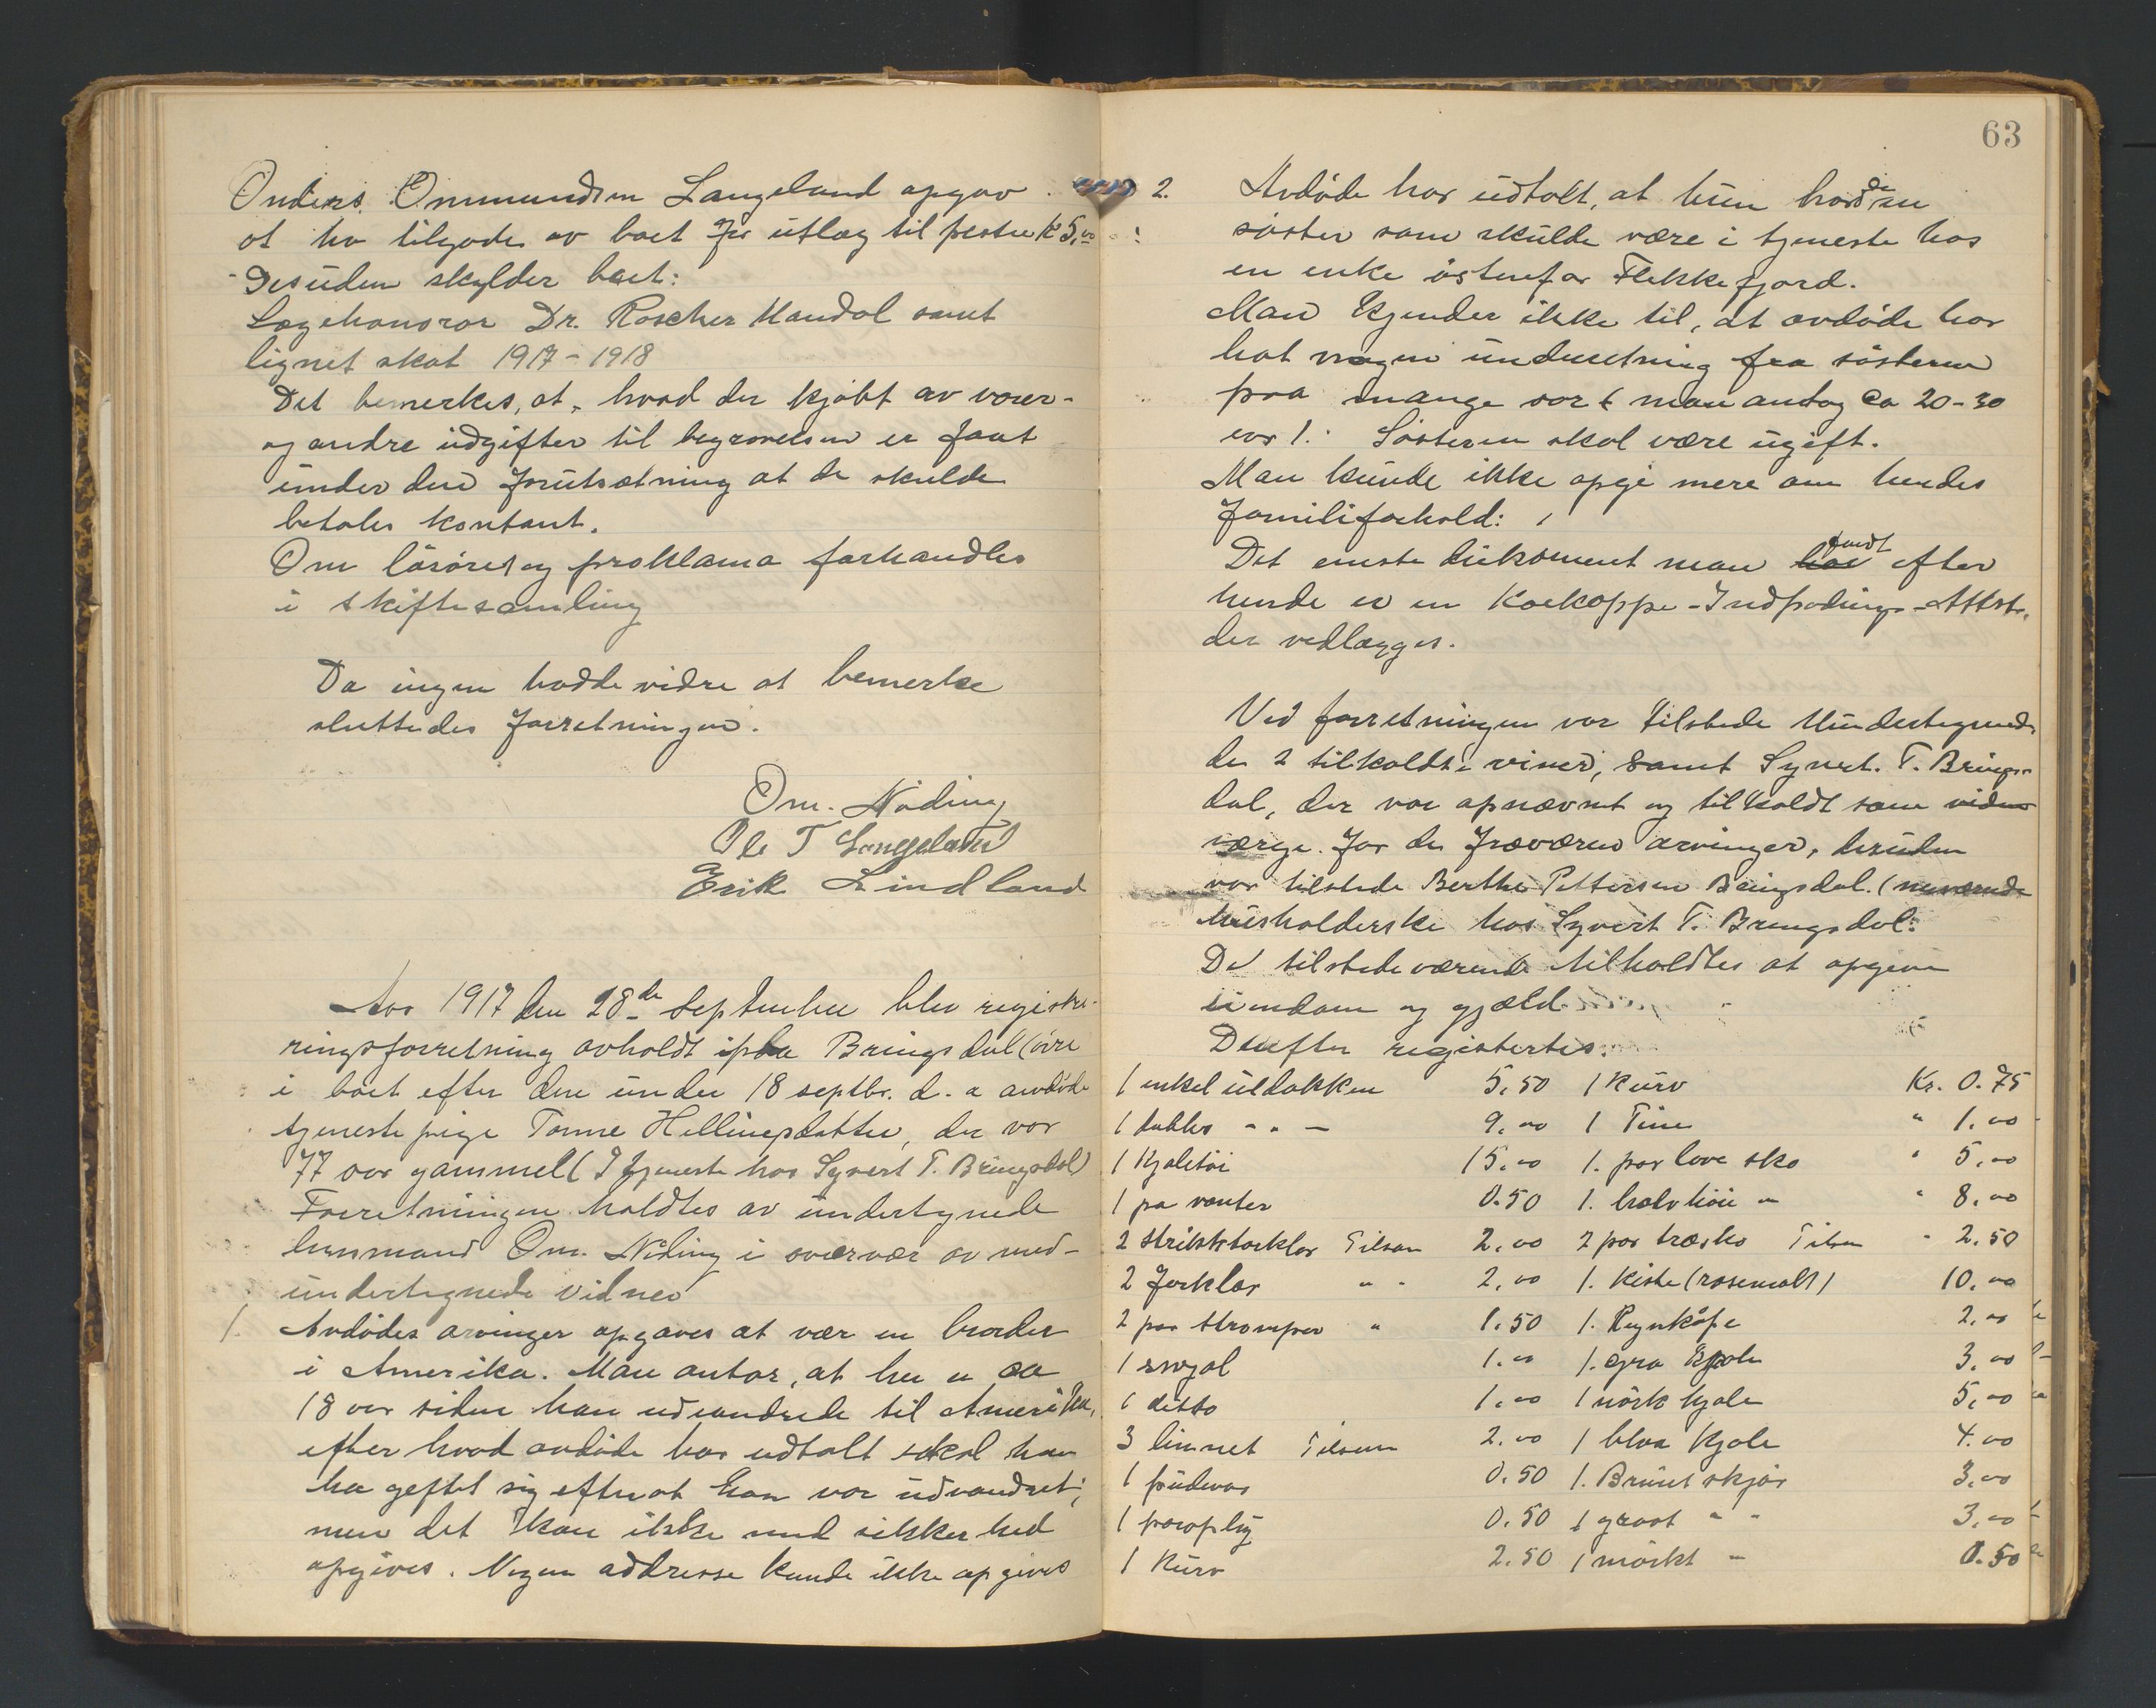 Anders Ommundsen Langeland opgav
at ha tilgode av boet for utlæg til prsten K 5,00
Desuden skylder boet:
Lægehonorar Dr. Roscher Mandal samt
lignet skat 1917-1918
Det bemerkes, at hvad der kjøbt av varer-
og andre udgifter til begravelsen er faat
under den forutsætning at de skulde
betales kontant.
Om løsøret og proklama forhandles
i skiftesamling
Da ingen hadde vidre at bemerke
sluttedes forretningen.
Om. Nöding
Ole T Langeland
Erik Lindland
Aar 1917 den 28de September blev registre-
ringsforretning avholdt paa Bringsdal (øvre
i boet efter den under 18 septbr. d. a avdøde
tjenestepige Tonne Hellingsdatter, der var
77 aar gammel (I tjeneste hos Syvert T. Bringsdal)
Forretningen holdtes av undertegnede
lensmand Om. Nöding i overvær av med-
undertegnede vidner
1. Avdødes arvinger opgaves at vær en broder
i Amerika. Man antar, at her er ca
18 aar siden han udvandrede til Amerika,
efter hvad avdøde har udtalt skal han
ha geftet sig efterat han var udvandret;
men det kan ikke med sikkerhed
opgives. Nogen addresse kunde ikke opgives
63
2. Avdøde har udtalt, at hun hadde en
søster som skulde være i tjeneste hos
en enke østenfor Flekkefjord.
Man kjender ikke til, at avdøde har
hat nogen underretning fra søsteren
paa mange aar (man antog ca 20-30
aar). Søsteren skal være ugift.
Man kunde ikke opgi mere om hendes
familiforhold:
Det eneste dukoment man har fundt efter
hende er en Kokoppe-Indpodings-Attest.
der vedlægges.
Ved forretningen var tilstede Undertegnede
de 2 tilkaldte viner, samt Syvert. T. Brings-
dal, der var opnævnt og tilkaldt som vidne
værge. for de fraværend arvinger, desuden
var tilstede Berthe Pettersen Bringsdal. (nuværende
husholderske hos Syvert T. Bringsdal.
De tilstedeværende tilholdtes at opgive
eiendom og gjæld
Derefter registertes:
1 enkel uldakken 5,50 1 Kurv Kr. 0.75
1 dubbes " " - 9,00 1 Tine " 1,00
1 Kjoletøi 15,00 1. par lave sko " 5,00
1 pa vanter 0.50 1. halvhøie " " 8,00
2 strikkforklær Tilsam 2,00 2 par træsko Tilsam " 2,50
2 forklær " " 2,00 1. Kiste (rosemalt) 10,00
2 par strømper " 1.50 1. Regnkåpe 2,00
1 svgal 1.00 1. gra Kjole 3,00
1 ditto 1,00 1 mørk kjole 5,00
3 linnet Tilsam 2.00 1 blaa Kjole 4.00
1 pudevar 0.50 1. Brunt skjør 3,00
1 paraply 0.50 1 graat " " 3,00
1 Kurv 2.50 1 mørkt " 0.50